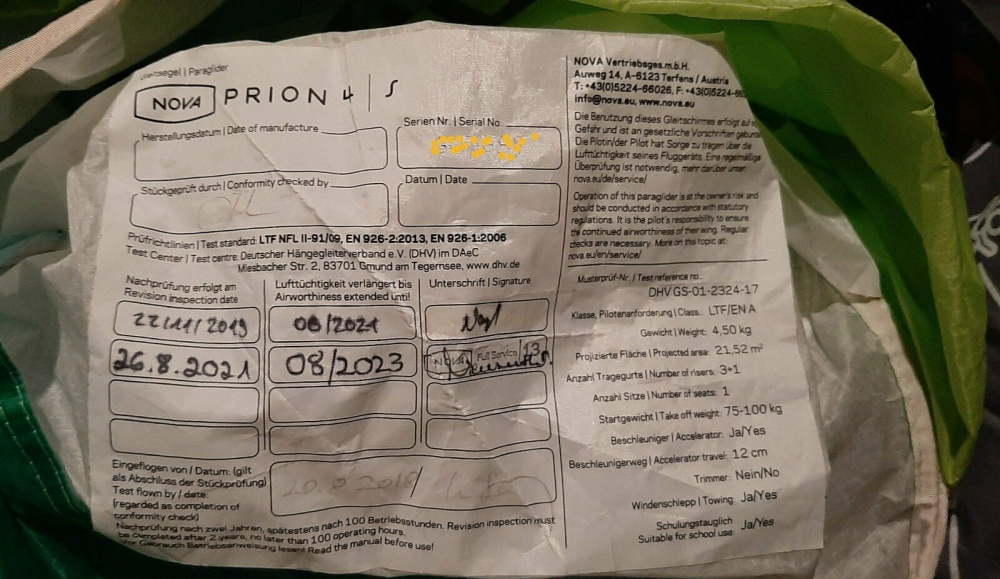 Gleitsegel | Paraglider
NOVA PRION 4 | S
Herstellungsdatum | Date of manufacture
Serien Nr. | Serial No.
Stückgeprüft durch | Conformity checked by
Datum | Date
Prüfrichtlinien | Test standard: LTF NFL II-91/09, EN 926-2:2013, EN 926-1:2006
Test Center | Test centre: Deutscher Hängegleiterverband e.V. (DHV) im DAeC
Miesbacher Str. 2, 83701 Gmund am Tegernsee, www.dhv.de
Nachprüfung erfolgt am
Revision inspection date
Lufttüchtigkeit verlängert bis
Airworthiness extended until
Unterschrift | Signature
22/11/2019 08/2021
26.8.2021 08/2023 NOVA Full Service 13
Eingeflogen von / Datum: (gilt
als Abschluss der Stückprüfung)
Test flown by / date:
(regarded as completion of
conformity check)
20.8.2018/
Nachprüfung nach zwei Jahren, spätestens nach 100 Betriebsstunden. Revision inspection must
be completed after 2 years, no later than 100 operating hours.
Vor Gebrauch Betriebsanweisung lesen! Read the manual before use!
NOVA Vertriebsges.m.b.H.
Auweg 14, A-6123 Terfens / Austria
T: +43(0)5224-66026, F: +43(0)5224-66
info@nova.eu, www.nova.eu
Die Benutzung dieses Gleitschirmes erfolgt auf
Gefahr und ist an gesetzliche Vorschriften
Die Pilotin/der Pilot hat Sorge zu tragen über die
Lufttüchtigkeit seines Fluggeräts. Eine regelmäßige
Überprüfung ist notwendig, mehr darüber unter:
nova.eu/de/service/
Operation of this paraglider is at the owner's risk and
should be conducted in accordance with statutory
regulations. It is the pilot's responsibility to ensure
the continued airworthiness of their wing. Regular
checks are necessary. More on this topic at:
nova.eu/en/service/
Musterprüf-Nr. | Test reference no.
DHV GS-01-2324-17
Klasse, Pilotenanforderung | Class.: LTF/EN A
Gewicht | Weight: 4,50 kg
Projizierte Fläche | Projected area: 21,52 m²
Anzahl Tragegurte | Number of risers: 3+1
Anzahl Sitze | Number of seats: 1
Startgewicht | Take off weight: 75-100 kg
Beschleuniger | Accelerator: Ja/Yes
Beschleunigerweg | Accelerator travel: 12 cm
Trimmer: Nein/No
Windenschlepp | Towing: Ja/Yes
Schulungstauglich
Suitable for school use: Ja/Yes